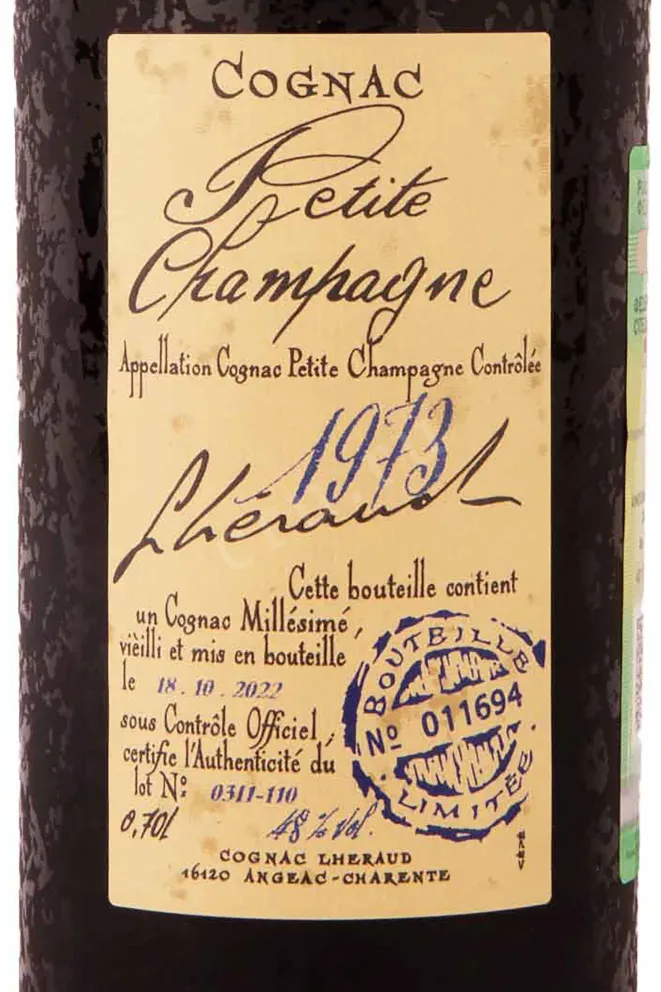 COGNAC
Petite
Champagne
Appellation Cognac Petite Champagne Contrôlée
1973
Lhéraud
Cette bouteille contient
un Cognac Millésimé,
vieilli et mis en bouteille
le 18.10.2022
sous Contrôle Officiel,
certifie l'Authenticité du
lot No: 0311-110
0,70l 48 % Vol.
BOUTEILLE
No 011694
LIMITÉE
COGNAC LHERAUD
16120 ANGEAC-CHARENTE